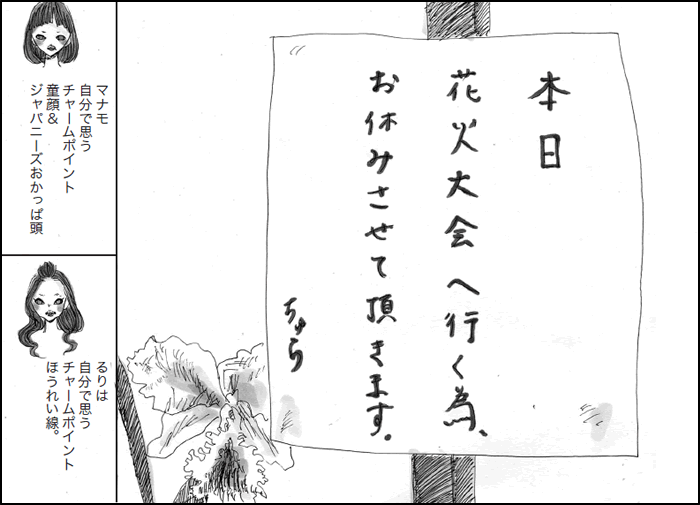 本日
花火大会へ行く為、
お休みさせて頂きます。
ちゅら
マナモ
自分で思う
チャームポイント
童顔＆
ジャパニーズおかっぱ頭
るりは
自分で思う
チャームポイント
ほうれい線。